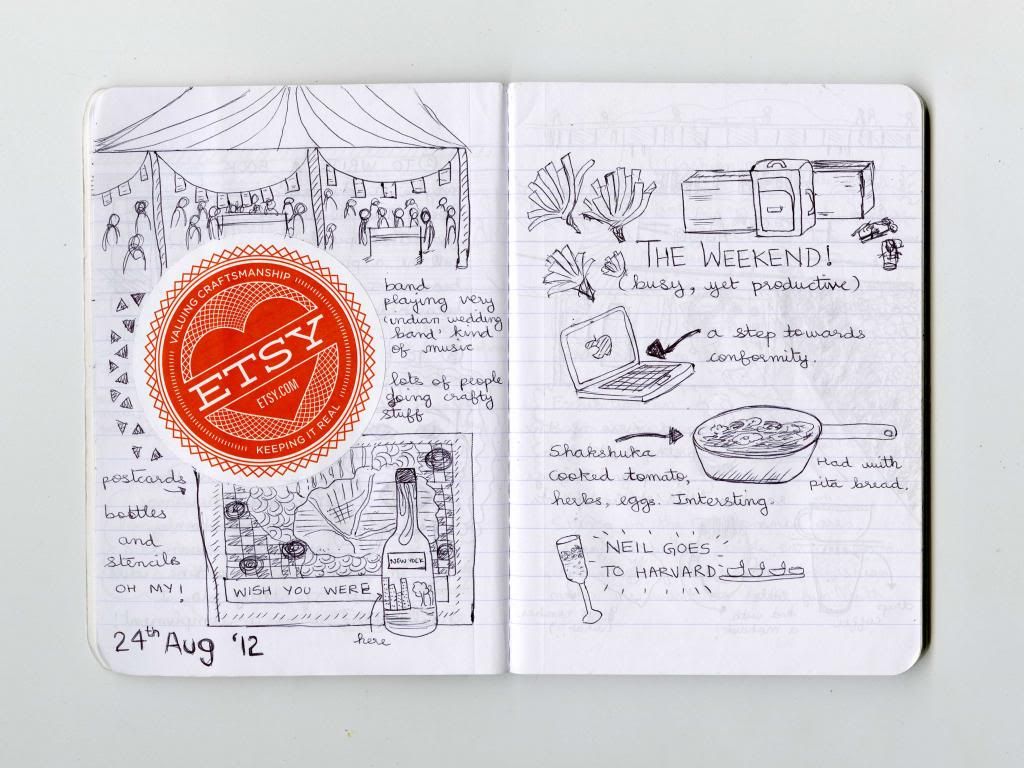 VALUING CRAFTSMANSHIP
ETSY
ETSY.COM
KEEPING IT REAL
band
playing very
'indian wedding
band' kind
of music
lots of people
doing crafty
stuff
postcards
bottles
and
stencils
OH MY!
NEW YORK
WISH YOU WERE
here
24th Aug '12
THE WEEKEND!
(busy, yet productive)
a step towards
conformity.
Shakshuka
cooked tomato,
herbs, eggs. Intersting.
Had with
pita bread.
NEIL GOES
TO HARVARD